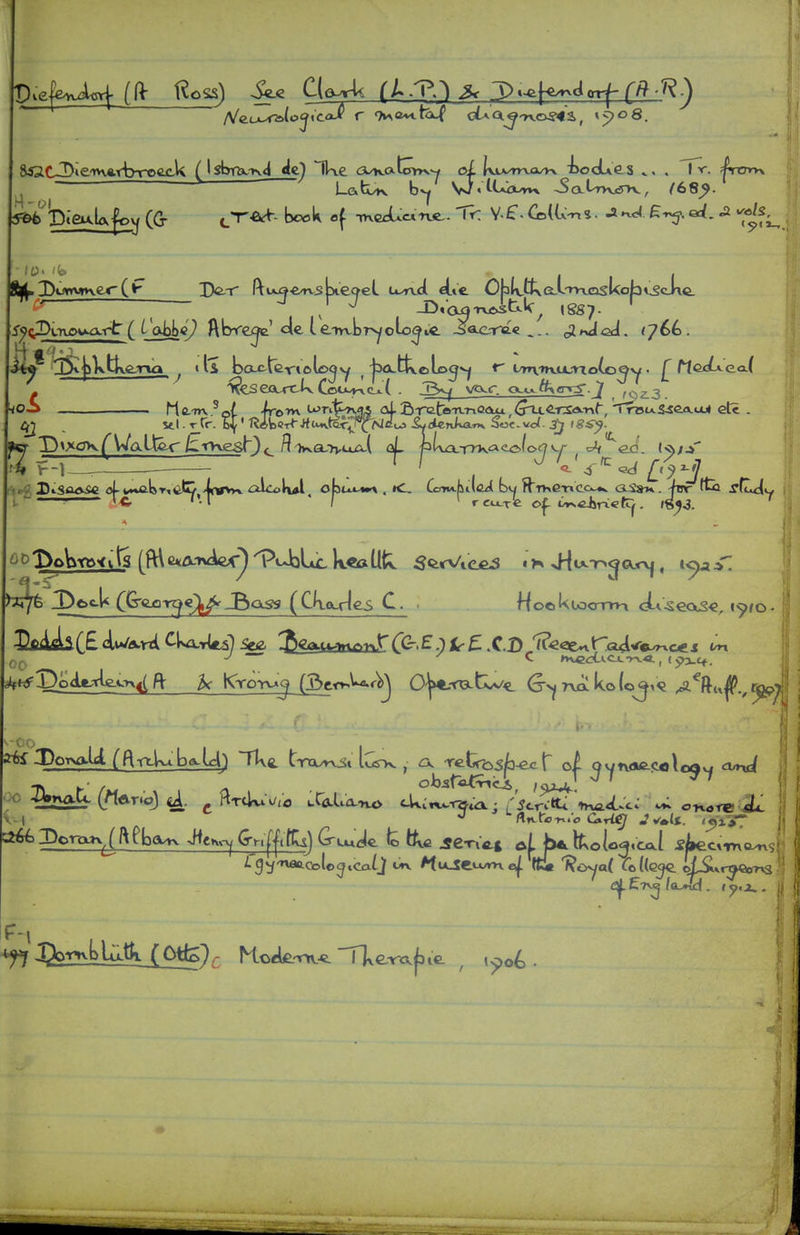 Diefendorf (A Ross) See Clark (L.P.) & Diefendorf (A.R.)
Neurological & mental diagnosis, 1908.
Diemerbroeck (Isbrand de) The anatomy of human bodies ... Tr. from
Latin by W. Salmon, 1689.
H-01
Dieulafoy (G Text-book of medicine. Tr. V.E. Collins. 2nd Eng. ed. 2 vols,
1912.
Dimmer (F Der Augenspiegel und die Ophthalmoskopische
Diagnostik, 1887.
Dinouart (l'abbé) Abrégé de l'embryologie Sacrée ... 2nd ed. 1766.
Diphtheria, its bacteriology, pathology & immunology. [Medical
Research Council. By var. authors.], 1923.
Mem.s of, from writings of Bretonneau, Guersant, Trousseau etc.
sel. & tr. by Robert Hunter Semple (New Sydenham Soc. vol. 3) 1859.
Dixon (Walter Ernest) A manual of pharmacology, 4th ed. 1915
F-1 5th ed [1921]
Disease of inebriety, from alcohol, opium, &c. Compiled by American assn. for the study
& cure of inebriety. 1893.
Dobrovits (Alexander) Public health Services in Hungary, 1925.
Dock (George) & Bass (Charles C. Hookworm disease, 1910.
Dodds (Edward Charles) See Beaumont (G.E.) & E.C.D Recent advances in
medicine, 1924.
Döderlein A & Krönig (Bernh.) Operative Gynäkologie 2e Aufl.,
Donald (Archibald) The transn , a retrospect of gynaecology and
obstetrics, 1924.
Donati (Mario) ed. Archivio italiano chirurgia; [Scritti medici in onore di
Antonio Carle] 2 vols. 1925
Doran (Alban Henry Griffiths) Guide to the series of pathological specimens
[gynaecological] in Museum of the Royal College of Surgeons
of England. 1912.
F-1
Dornblüth (Otto) Moderne Therapie, 1906.